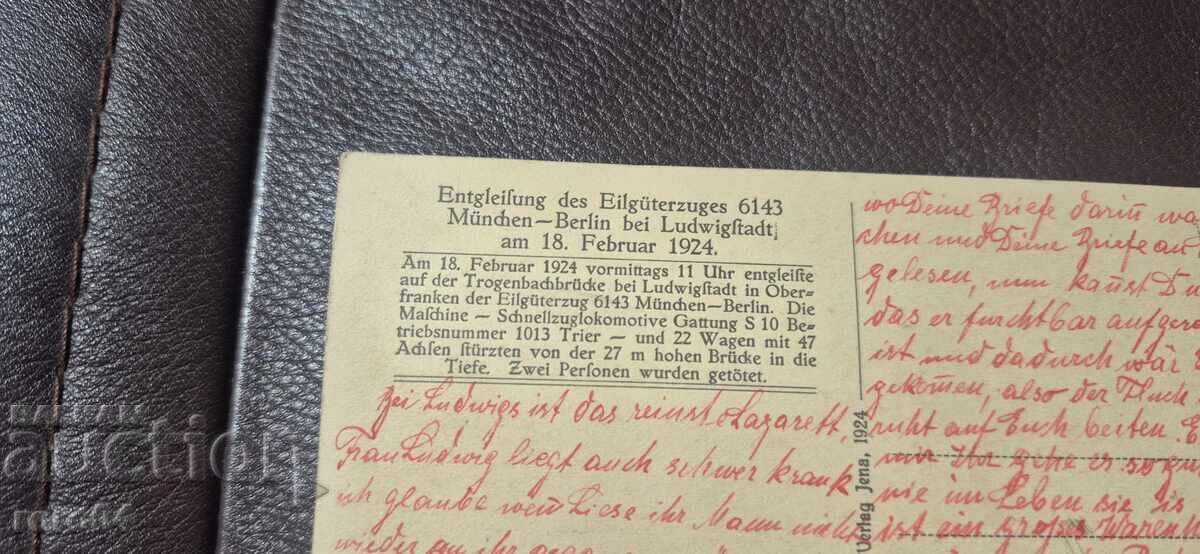 Entgleiſung des Eilgüterzuges 6143
München—Berlin bei Ludwigſtadt
am 18. Februar 1924.
Am 18. Februar 1924 vormittags 11 Uhr entgleiſte
auf der Trogenbachbrücke bei Ludwigſtadt in Ober=
franken der Eilgüterzug 6143 München—Berlin. Die
Maſchine — Schnellzuglokomotive Gattung S 10 Be=
triebsnummer 1013 Trier — und 22 Wagen mit 47
Achſen ſtürzten von der 27 m hohen Brücke in die
Tiefe. Zwei Perſonen wurden getötet.
bei Ludwigs ist das reinst Lazarett,
Frau Ludwig liegt auch schwer krank
ich glaube wen̄ Liese ihr Mann nicht
wieder an ihr
Verlag Jena, 1924
wo Deine Briefe darin̄
chen und Deine Briefe an
gelesen, nun kan̄st Du
das er furchtbar
ist und dadurch wär
gekom̄en, also der Fluch
ruht auf Euch beiten.
mir Ihr gehe es so gut
wie im Leben sie is
ist ein großes
BALKAN
auction